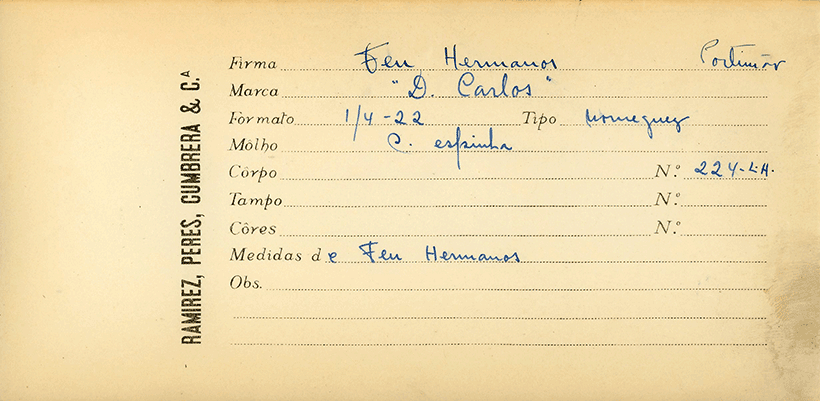 RAMIREZ, PERES, CUMBRERA & C.ª
Firma Feu Hermanos Portimão
Marca "D. Carlos"
Formato 1/4 - 22 Tipo norueguez
Môlho C. espinha
Côrpo N.º 224-L.A.
Tampo N.º
Côres N.º
Medidas de Feu Hermanos
Obs.